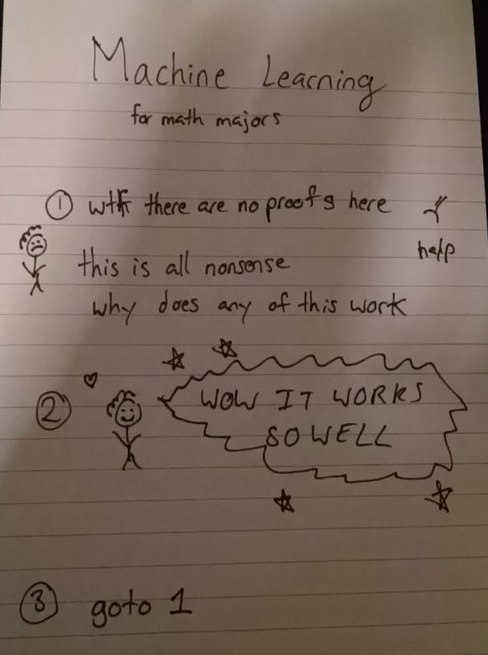 Machine Learning
for math majors
① wtf there are no proofs here
help
this is all nonsense
why does any of this work
② WOW IT WORKS
SO WELL
③ goto 1